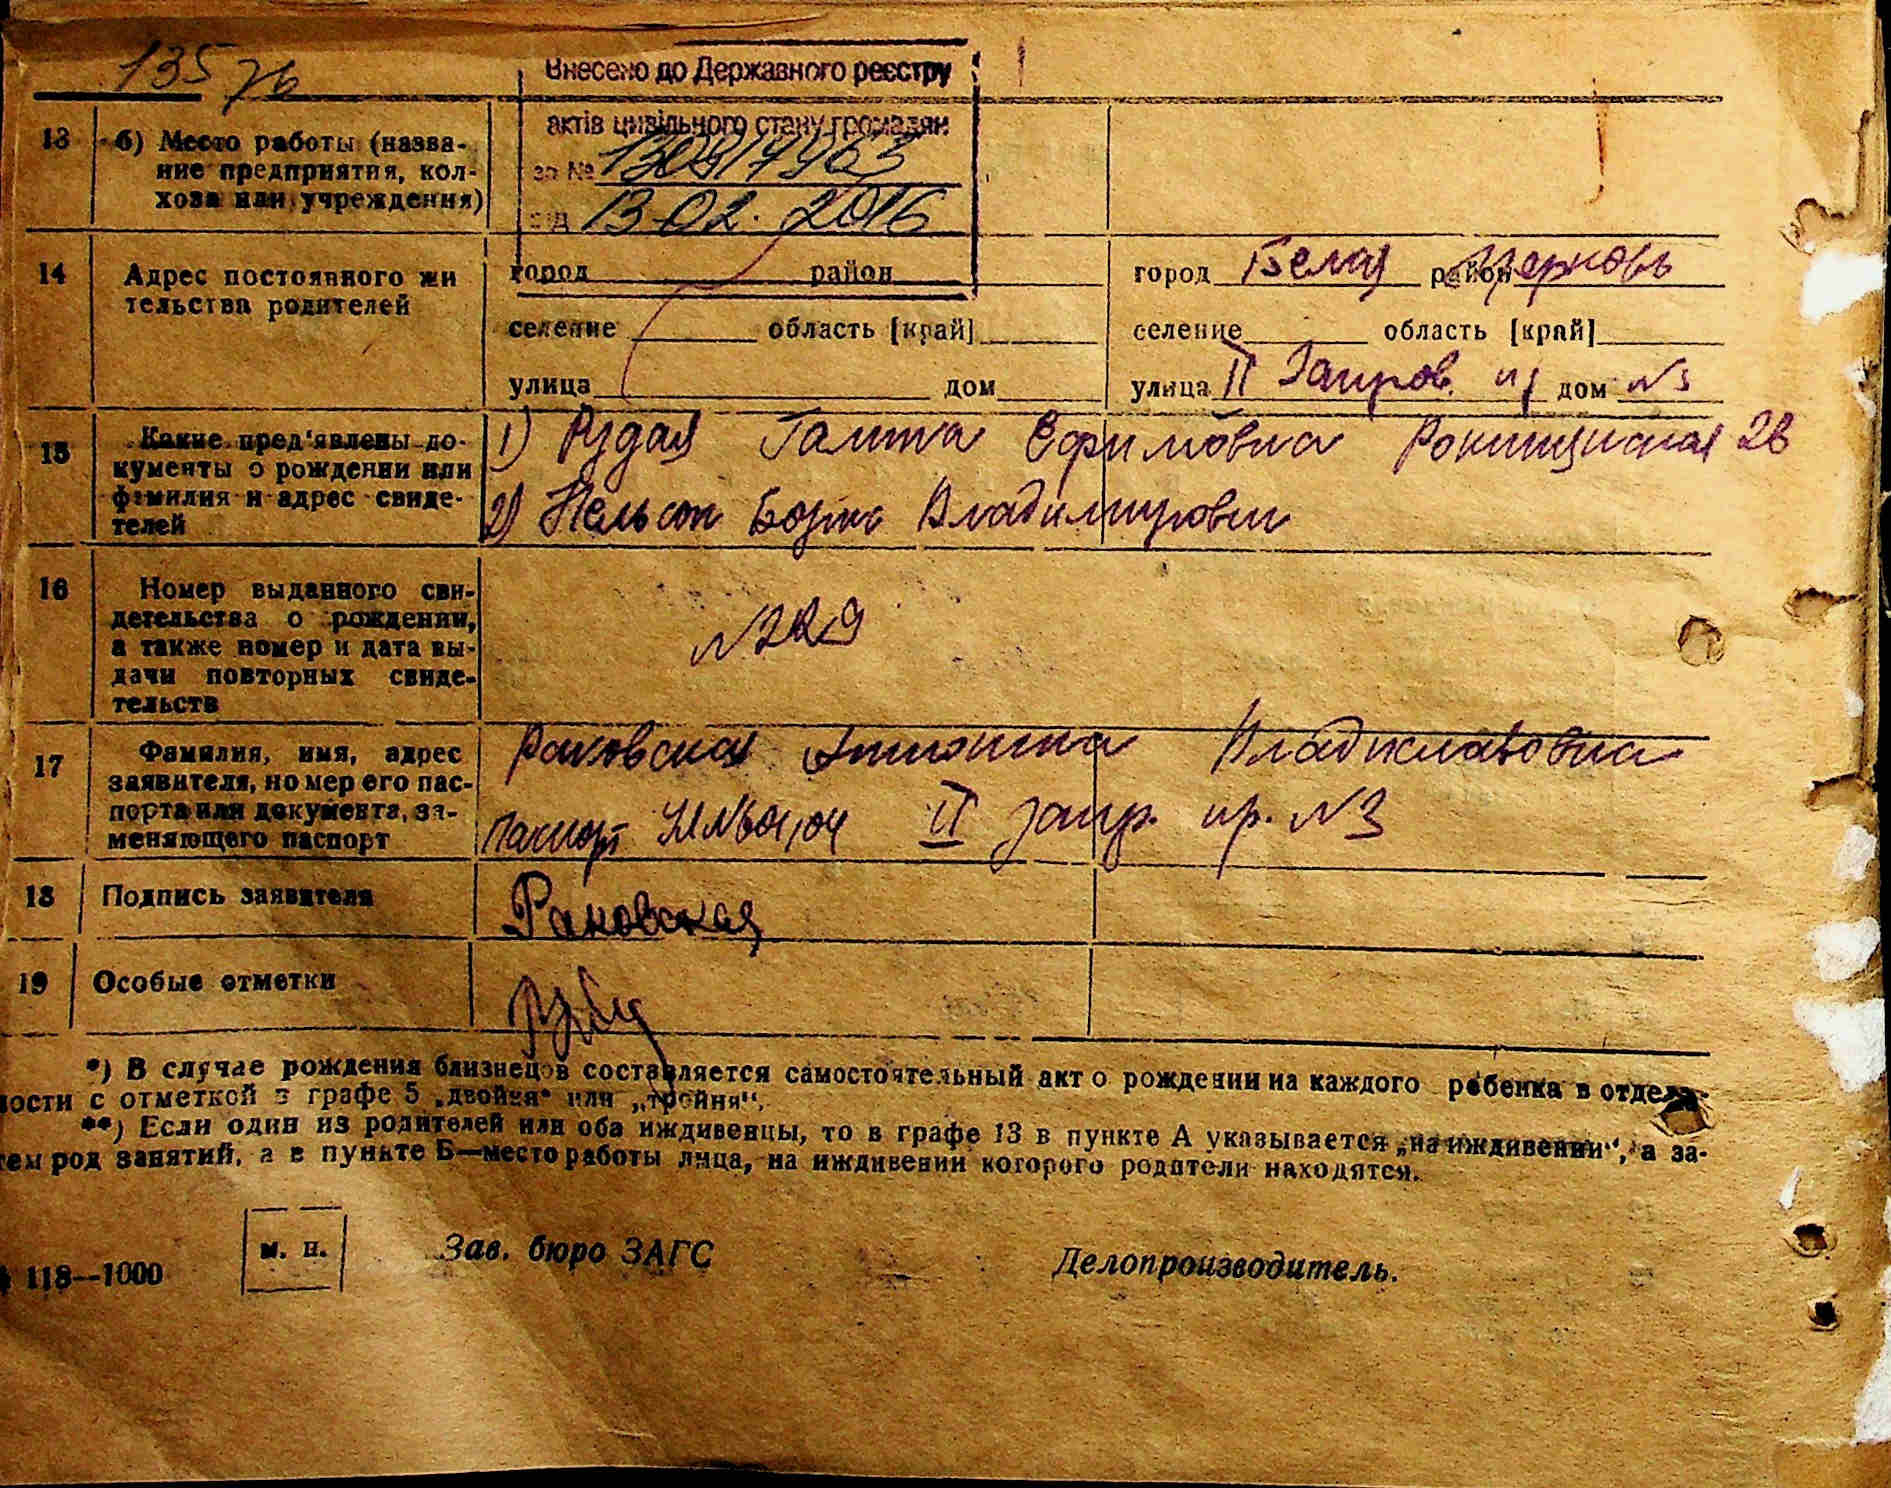 135 76
Внесено до Державного реєстру
актів цивільного стану громадян
за №
від 13-02. 2016
13 б) Место работы (назва-
ние предприятия, кол-
хоза или учреждения)
14 Адрес постоянного жи
тельства родителей
город район
селение область [край]
улица дом
город Белая район Церковь
селение область [край]
улица II Заиров. дом №3
15 Какие пред'явлены до-
кументы о рождении или
фамилия и адрес свиде-
телей
1) Рудая Галина Ефимовна 28
2) Нельсон Борис Владимирович
16 Номер выданного сви-
детельства о рождении,
а также номер и дата вы-
дачи повторных свиде-
тельств
№229
17 Фамилия, имя, адрес
заявителя, номер его пас-
порта или документа, за-
меняющего паспорт
Раковская Антонина Владиславовна
Паспорт II заир. пр. №3
18 Подпись заявителя
Раковская
19 Особые отметки
*) В случае рождения близнецов составляется самостоятельный акт о рождении на каждого ребенка в отдель-
ности с отметкой в графе 5 „двойня" или „тройня".
**) Если один из родителей или оба иждивенцы, то в графе 13 в пункте А указывается „на иждивении", а за-
тем род занятий, а в пункте Б—место работы лица, на иждивении которого родители находятся.
м. п.
Зав. бюро ЗАГС
Делопроизводитель.
118—1000